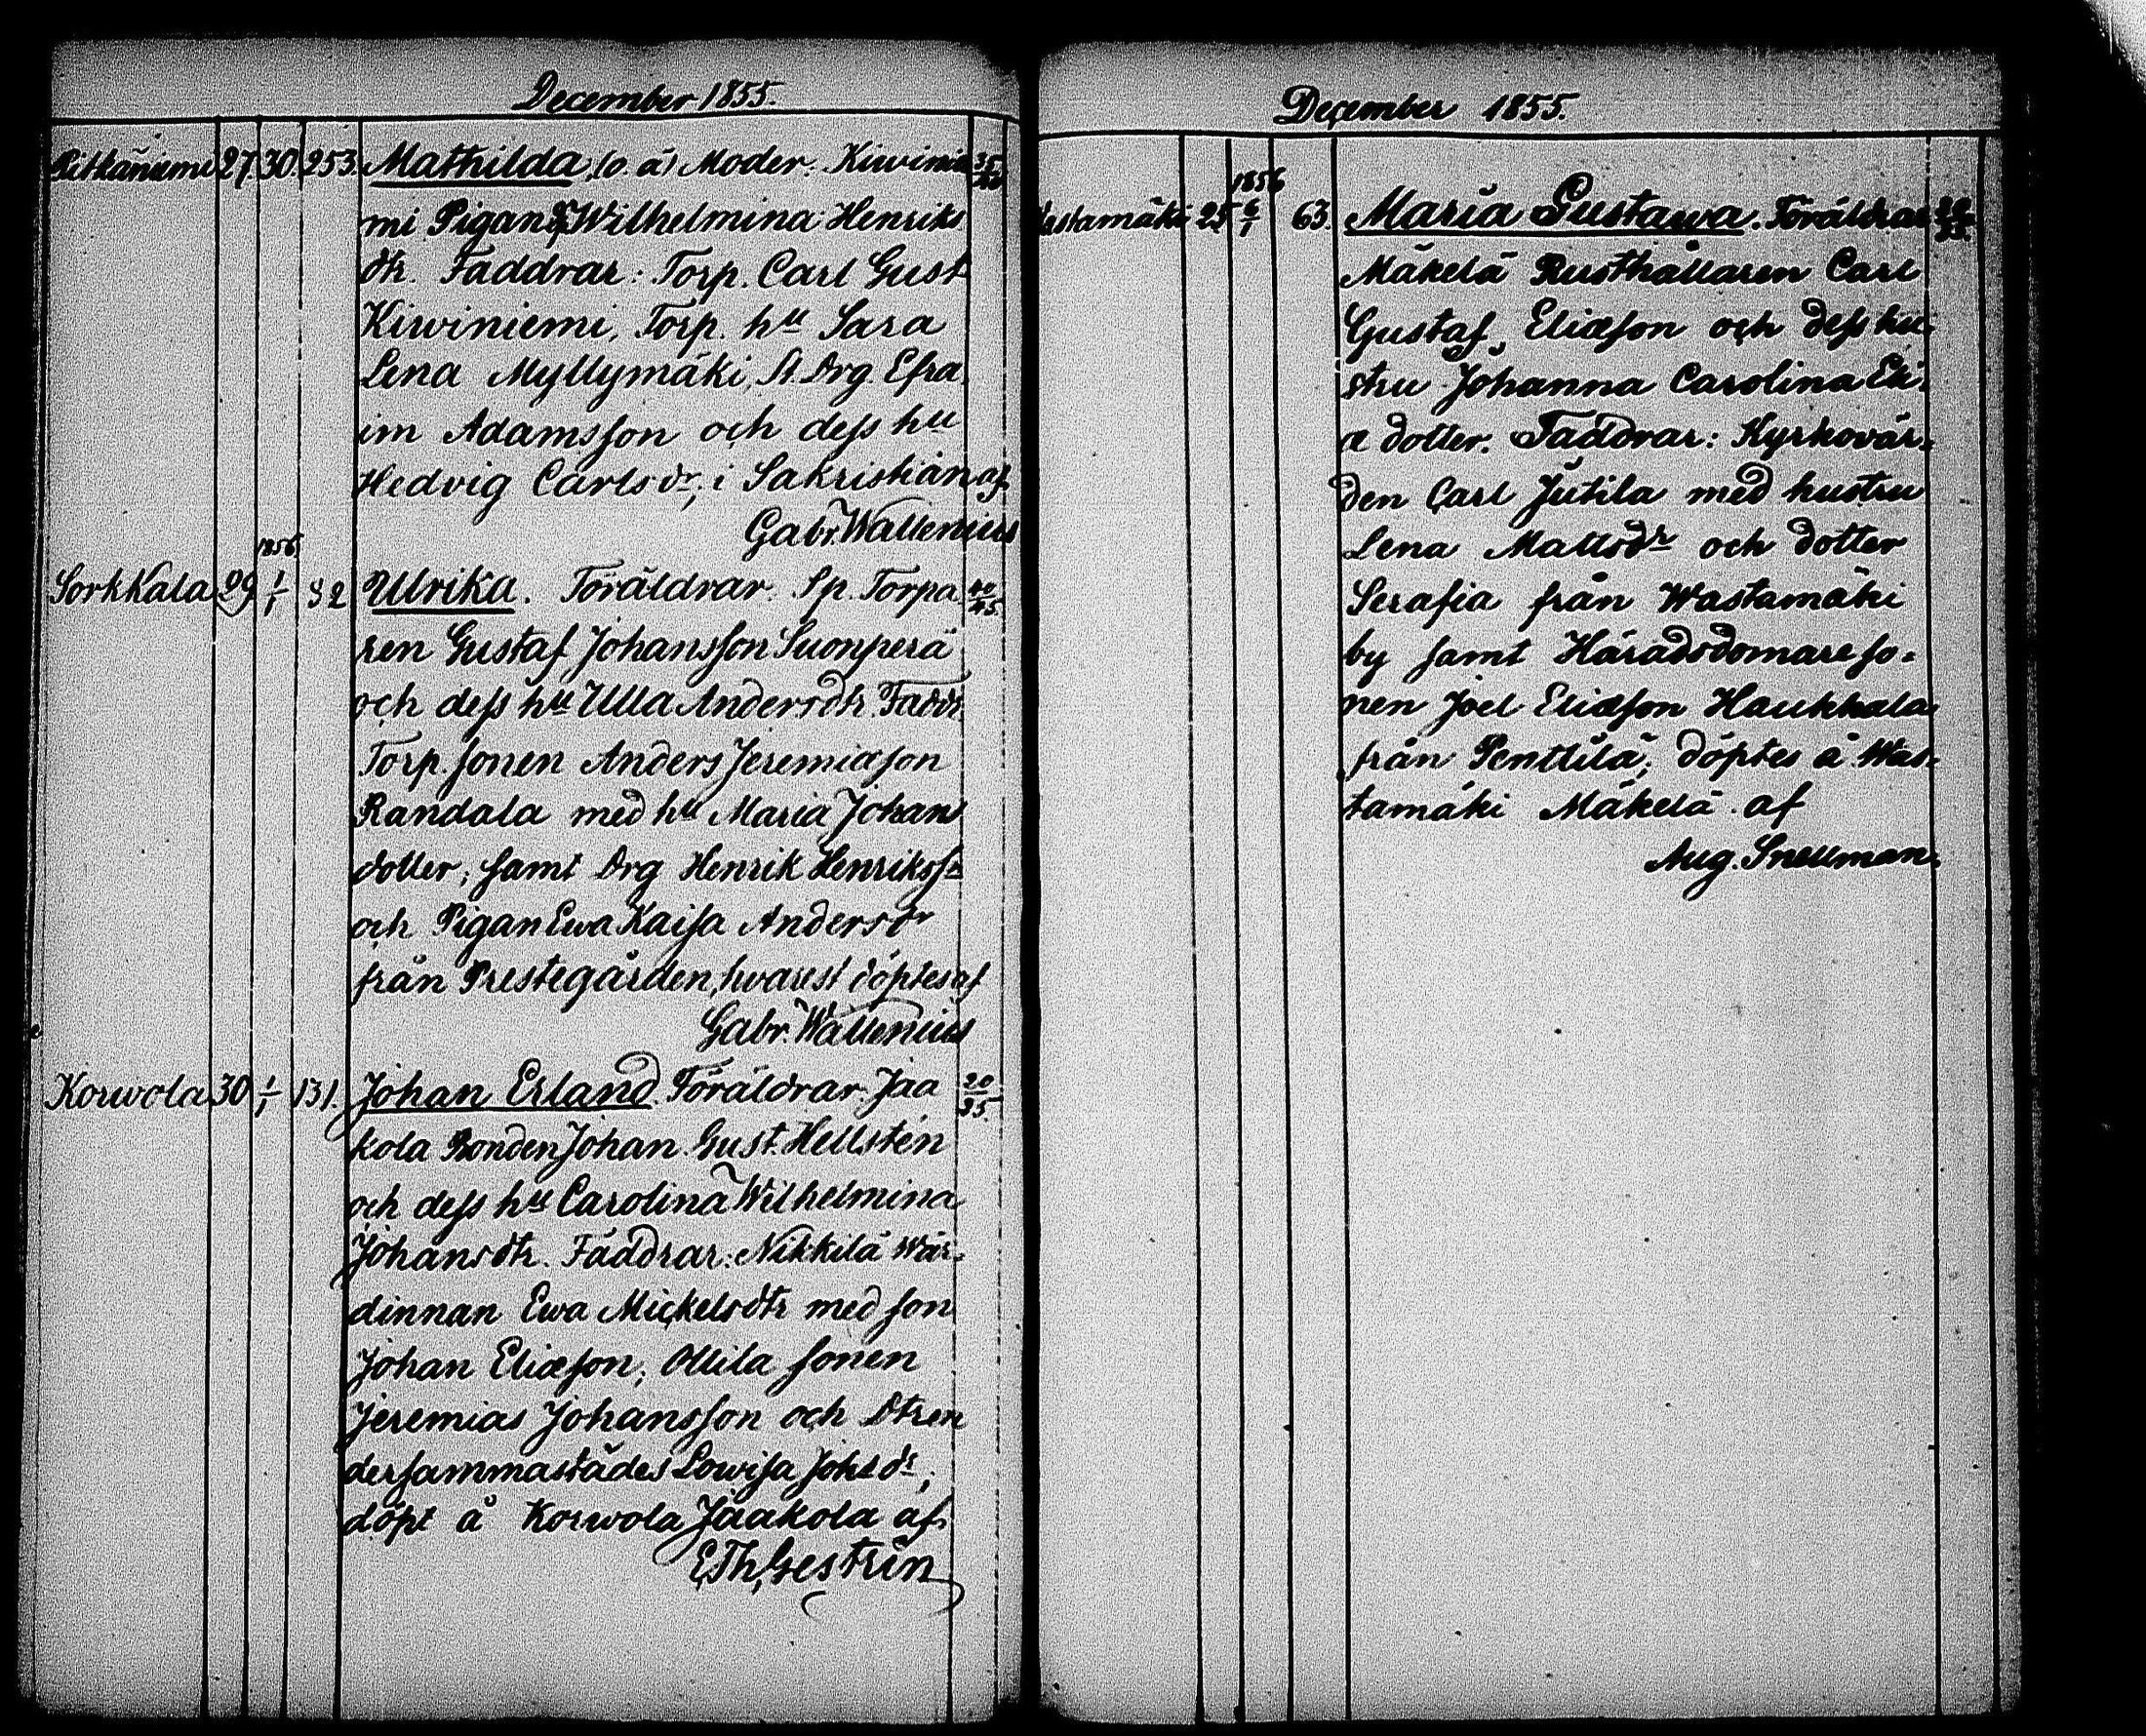 December 1855.
Pitkäniemi 27 30. 253. Mathilda, (o. ä) Moder: Kiwinie 35/40
mi Pigan Wilhelmina Henriks
dtr. Faddrar: Torp. Carl Gust
Kiwiniemi, Torp. hu Sara
Lena Myllymäki, St. Drg. Efra
im Adamsson och dess hu
Hedvig Carlsdr, i Sakristian af
Gabr. Wallenius
1856
Sorkkala 29 1/1 82 Ulrika. Föräldrar. Sp. Torpa 40/45
ren Gustaf Johansson Suonperä
och dess hu Ulla Andersdtr. Faddr.
Torp. sonen Anders Jeremiæson
Randala med hu Maria Johans
dotter; samt Drg Henrik Henrikss
och Pigan Ewa Kaisa Andersdr
från Prestegården, hvarest döptes af
Gabr. Wallenius
Korwola 30 1/1 131. Johan Erland. Föräldrar: Jaa 20/35.
kola Bonden Johan Gust. Hellstén
och dess hu Carolina Wilhelmina
Johansdtr. Faddrar: Nikkilä Wär-
dinnan Ewa Mickelsdtr med son
Johan Eliæson; Ollila sonen
Jeremias Johansson och dtren
dersammastädes Lowisa Johsdr;
döpt å Korwola Jaakola af
E. Th. Gestrin
December 1855.
1856
Wastamäki 25 6/1 63. Maria Gustawa. Föräldrar
Mäkelä Rusthållaren Carl
Gustaf Eliæson och dess hu-
stru Johanna Carolina Eli-
æ dotter. Faddrar: Kyrkovär-
den Carl Jutila med hustru
Lena Mattsdr och dotter
Serafia från Wastamäki
by samt Häradsdomareso-
nen Joel Eliæson Haukkala
från Penttilä; döptes å Was-
tamäki Mäkelä af
Aug. Snellman.